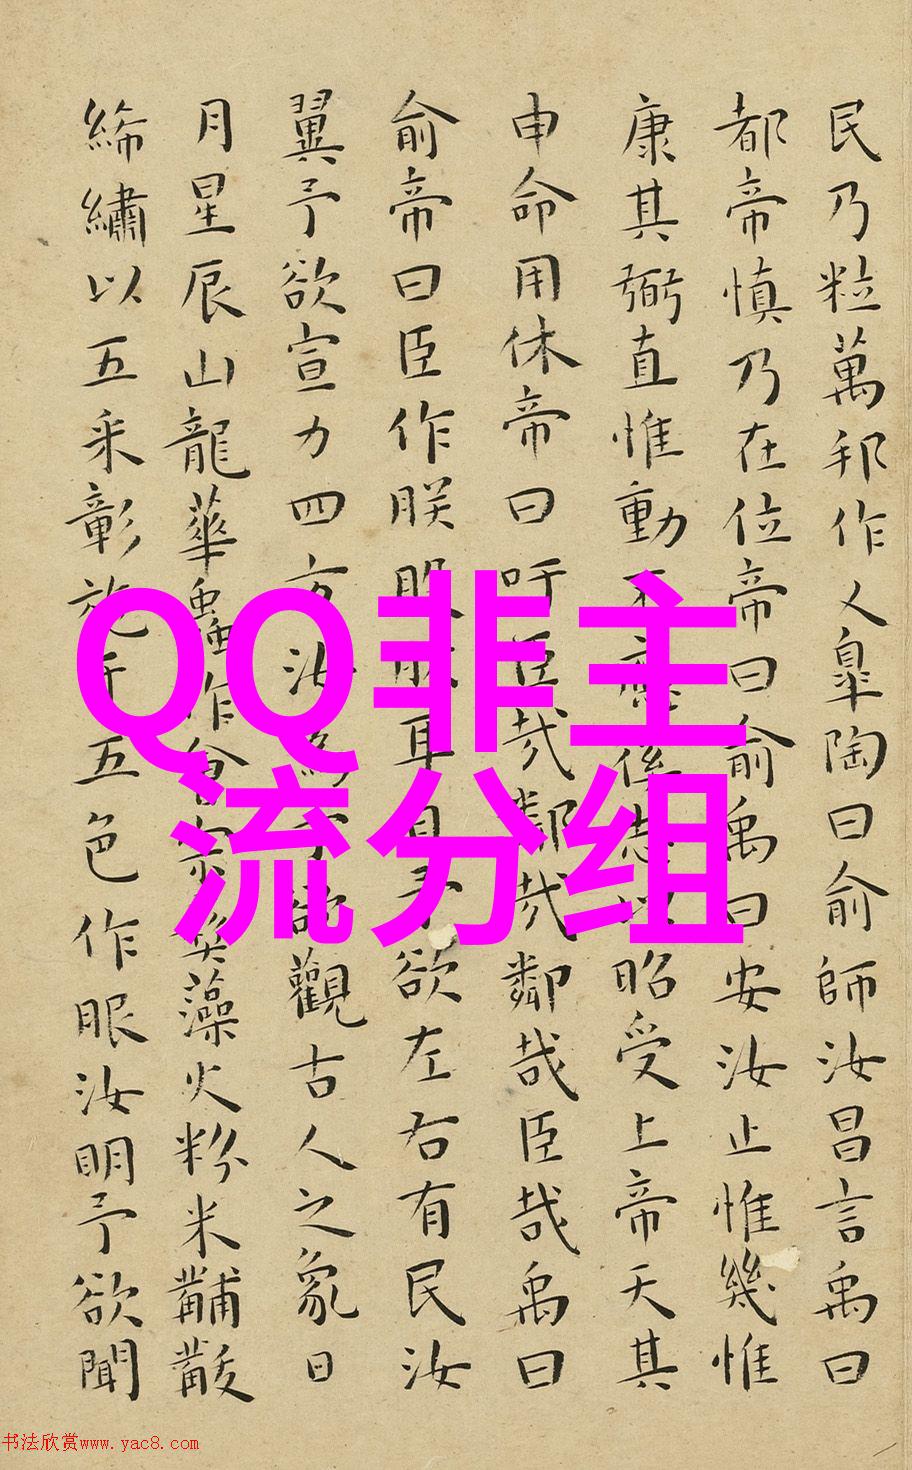 民乃粒萬邦作人皐陶曰俞師汝昌言禹曰
都帝慎乃在位帝曰俞禹曰安汝止惟幾惟
康其弼直惟動不應徯志以昭受上帝天其
申命用休帝曰吁臣哉鄰哉鄰哉臣哉禹曰
俞帝曰臣作朕股肱耳目予欲左右有民汝
翼予欲宣力四方汝為予欲觀古人之象日
月星辰山龍華蟲作會宗彝藻火粉米黼黻
絺繡以五采彰施于五色作服汝明予欲聞
QQ非主
流分组
书法欣赏www.yac8.com